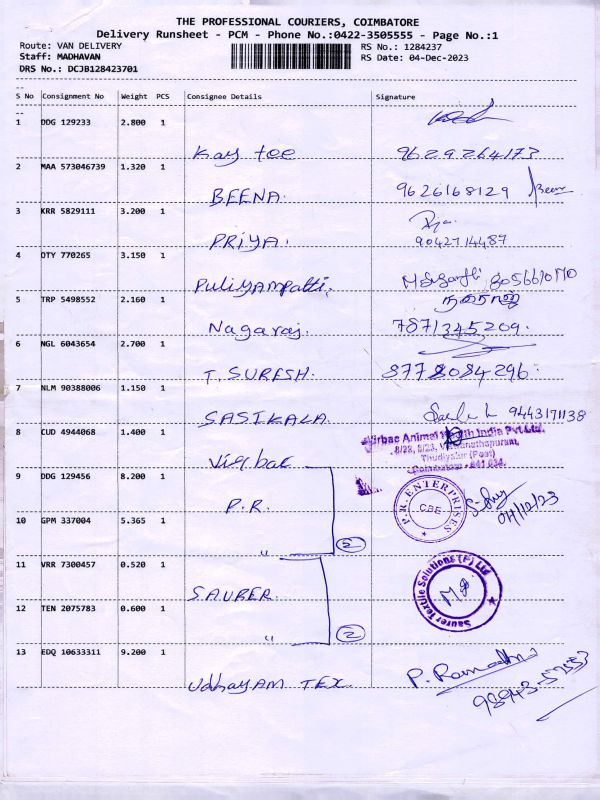 THE PROFESSIONAL COURIERS, COIMBATORE
Delivery Runsheet - PCM - Phone No.:0422-3505555 - Page No.:1
Route: VAN DELIVERY RS No.: 1284237
Staff: MADHAVAN RS Date: 04-Dec-2023
DRS No.: DCJB128423701
S No Consignment No Weight PCS Consignee Details Signature
1 DDG 129233 2.800 1
Kay tee 9629264173
2 MAA 573046739 1.320 1
BEENA. 9626168129 Beena
3 KRR 5829111 3.200 1
PRIYA. 9042714487
4 OTY 770265 3.150 1
Puliyampatti.
5 TRP 5498552 2.160 1
Nagaraj 7871345209.
6 NGL 6043654 2.700 1
T. SURESH. 8778084296.
7 NLM 90388006 1.150 1
SASIKALA. 9443171138
8 CUD 4944068 1.400 1
Virbac Virbac Animal Health India Pvt.Ltd.
Thudiyalur (Post)
Coimbatore - 641 034.
9 DDG 129456 8.200 1
P.R. P.R. ENTERPRISES CBE 04/12/23
10 GPM 337004 5.365 1
" 2
11 VRR 7300457 0.520 1
SAURER. Saurer Textile Solutions (P) Ltd
12 TEN 2075783 0.600 1
" 2
13 EDQ 10633311 9.200 1
Udhayam TEX. 98943-57553